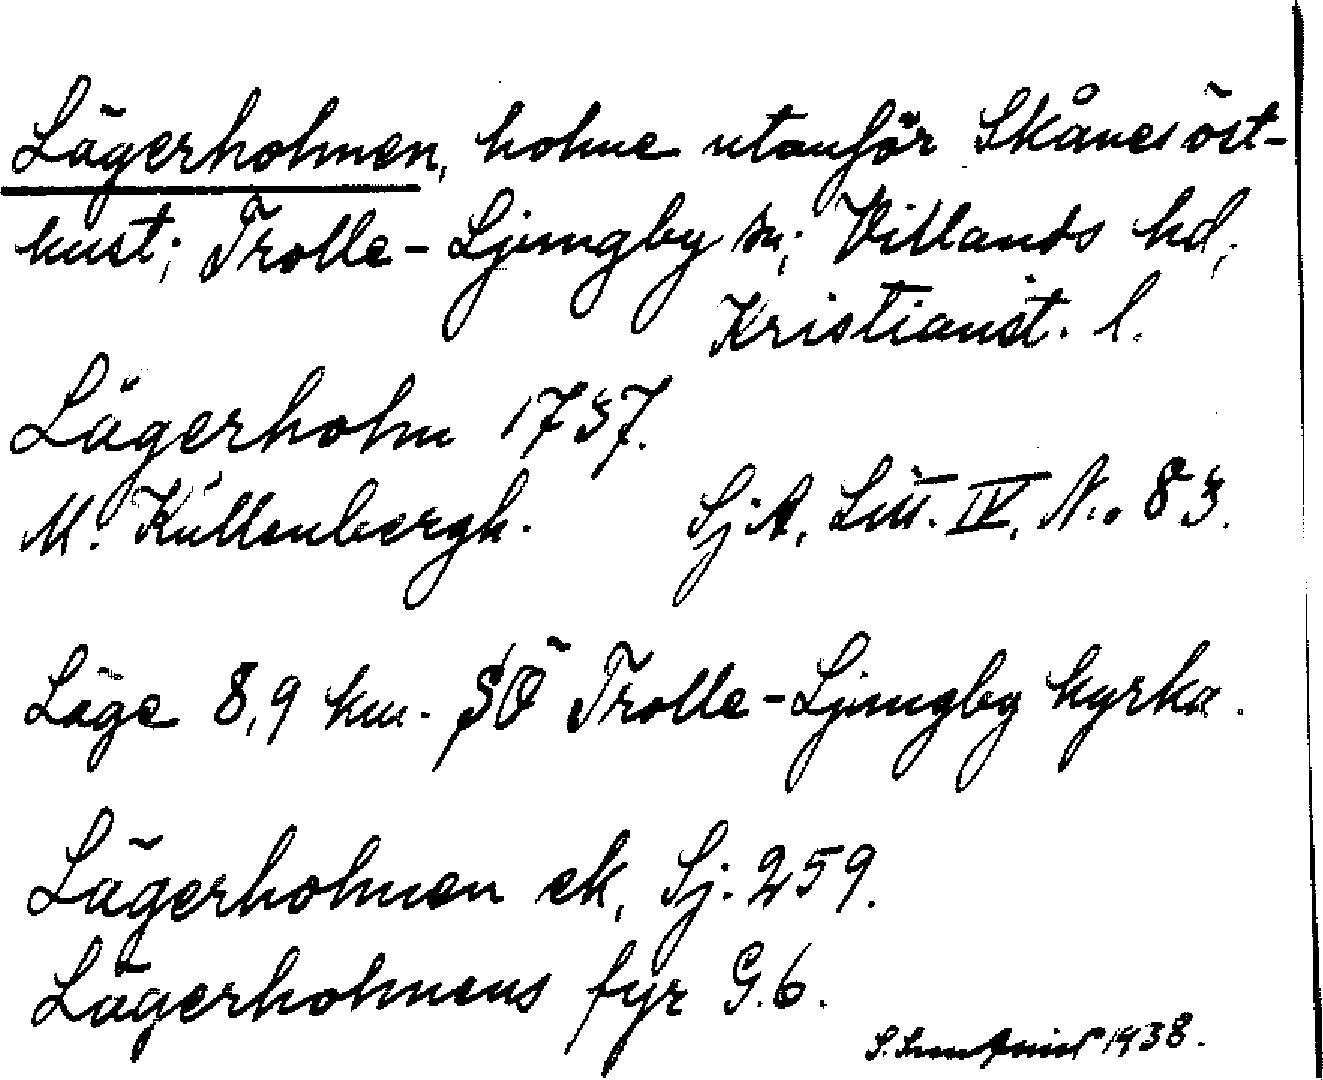 Lägerholmen, holme utanför Skånes öst-
kust; Trolle-Ljungby sn; Villands hd,
Kristianst. l.
Lägerholm 1737.
M. Kullenbergh. SjA, Litt. IV, N:o 83.
Läge 8,9 km. SÖ Trolle-Ljungby kyrka.
Lägerholmen ek, Sj. 259.
Lägerholmens fyr G.6.
S. 1938.